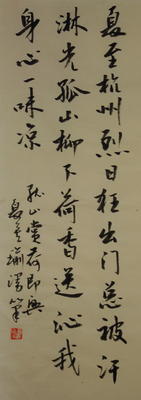 夏至杭州烈日狂出门总被汗
淋光孤山柳下荷香送沁我
身心一味凉
孤山赏荷即兴